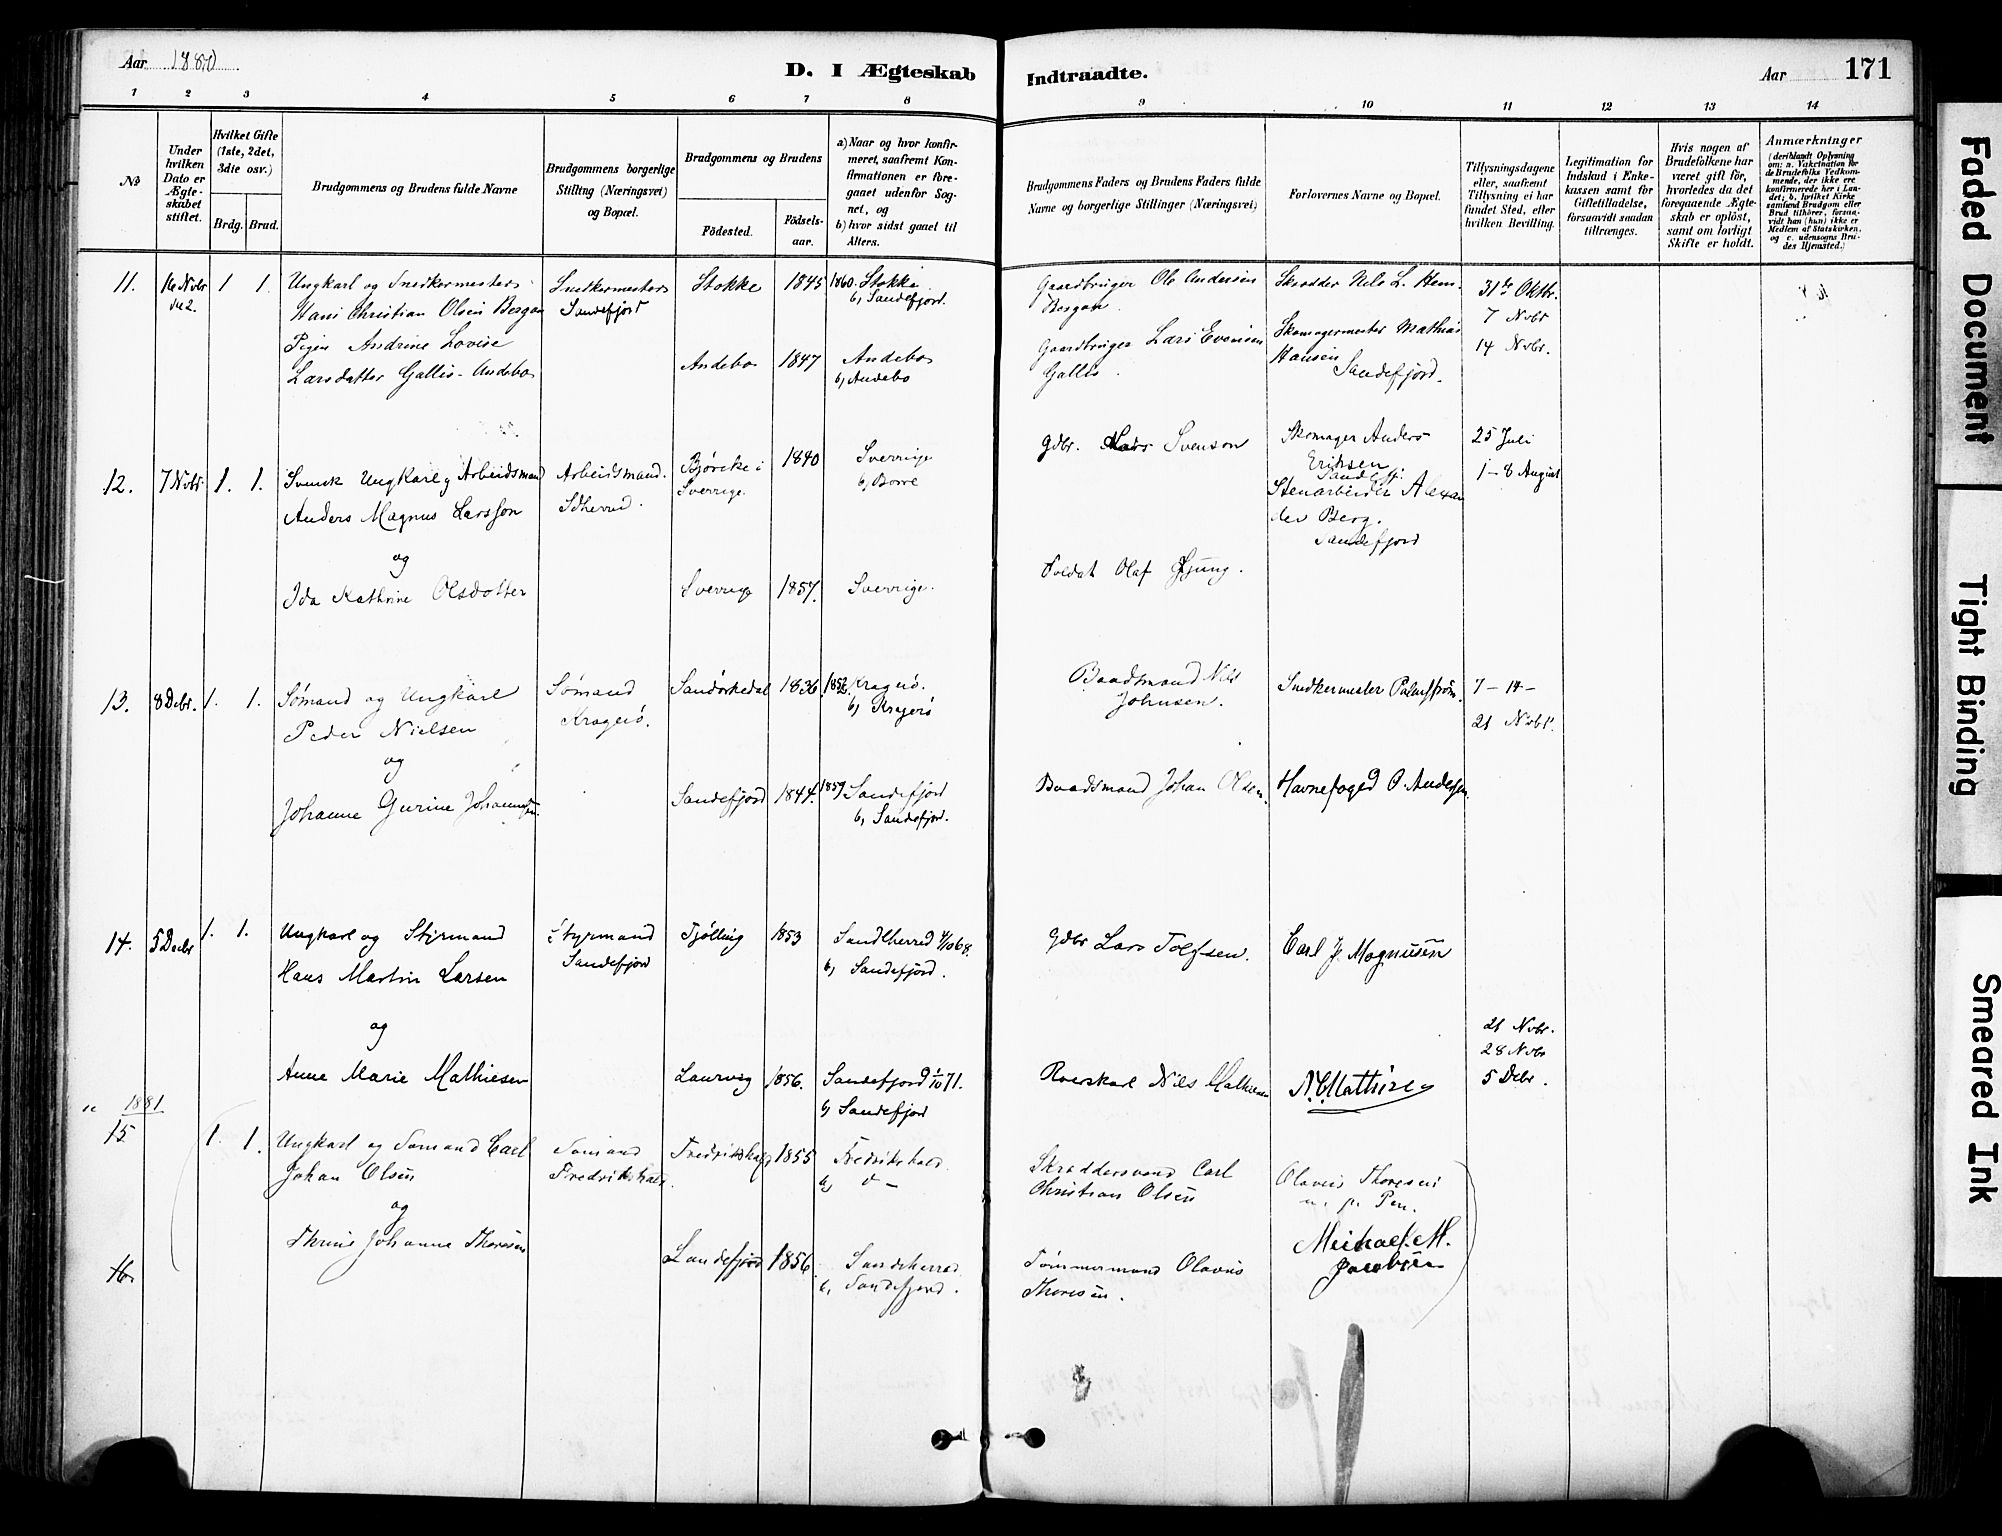 Aar 1880
D. I Ægteskab
Indtraadte.
Aar 171
1 2 3 4 5 6 7 8 9 10 11 12 13 14
No
Under hvilken Dato er Ægteskabet stiftet.
Hvilket Gifte (1ste, 2det, 3die osv.)
Brdg. Brud.
Brudgommens og Brudens fulde Navne
Brudgommens borgerlige Stilling (Næringsvei) og Bopæl.
Brudgommens og Brudens
Födested.
Födselsaar.
a) Naar og hvor konfirmeret, saafremt Konfirmationen er foregaaet udenför Sognet, og
b) hvor sidst gaaet til Alters.
Brudgommens Faders og Brudens Faders fulde Navne og borgerlige Stillinger (Næringsvei)
Forlovernes Navne og Bopæl.
Tillysningsdagene eller, saafremt Tillysning ei har fundet Sted, efter hvilken Bevilling.
Legitimation for Indskud i Enkekassen samt för Giftetilladelse, forsaavidt saadan tiltrænges.
Hvis nogen af Brudefolkene har været gift för, hvorledes da det foregaaende Ægteskab er oplöst, samt om lovligt Skifte er holdt.
Anmærkninger
(deriblandt Oplysning om: a. Vakcination for de Brudefolks Vedkommende, der ikke ere konfirmerede her i Landet; b. hvilket Kirkesamfund Brudgom eller Brud tilhörer, forsaavidt han (hun) ikke er Medlem af Statskirken, og c. udensogns Brudes Hjemsted.)
11. 16 Novbr 1 1.
Ungkarl og Snedkermester
Hans Christian Olsen Bergan
Pigen Andrine Lovise
Larsdatter Gallis - Andebo
Snedkermester
Sandefjord
Stokke 1845 1860. Stokke
b, Sandefjord.
Andebo 1847 Andebo
b, Andebo
Gaardbruger Ole Andersen
Bergan
Gaardbruger Lars Evensen
Gallis.
Skrædder Nils L.
Skomagermester Mathias
Hansen
Sandefjord.
31te Oktbr.
7 Novbr
14 Novbr.
12. 7 Novbr. 1. 1.
Svensk Ungkarl og Arbeidsmand
Anders Magnus Larsson
og
Ida Kathrine Olsdotter
Arbeidsmand.
Sdherred.
i
Sverrige. 1840
Sverrige
b, Borre
Sverrige 1857. Sverrige.
Gdbr. Lars Svenson
Soldat Olaf Ljung.
Skomager Anders
Eriksen
Sandefj.
Stenarbeider Alexan
der Berg.
Sandefjord
25 Juli
1 - 8 August
13. 8 Debr. 1. 1.
Sømand og Ungkarl
Peder Nielsen
og
Johanne Gurine Johannsen.
Sømand
Kragerö.
Sandökedal 1836 1852. Kragerö.
b, Kragerö
Sandefjord 1844. 1859 Sandefjord
b, Sandefjord.
Baadsmand Nils
Johnsen.
Baadsmand Johan Olsen.
Snedkermester Palmström.
Havnefoged P. Andersen.
7 - 14 -
21 Novbr.
14. 5 Decbr 1. 1.
Ungkarl og Styrmand
Hans Martin Larsen
og
Anne Marie Mathiesen
Styrmand
Sandefjord
Tjölling 1853 Sandeherred 4/10 68.
b, Sandefjord.
Laurvig 1856. Sandefjord 1/10 71.
b, Sandefjord
Gdbr Lars Tolfsen.
Roerskarl Nils Mathiesen
Carl J. Magnusen
N. C. Mathisen
21 Novbr.
28 Novbr
5 Debr.
1881.
15. 1. 1.
Ungkarl og Sømand Carl
Johan Olsen
og
Thrine Johanne Thoresen
Sømand
Fredrikshald.
Fredrikshald 1855 Fredrikshald.
b, d -
Sandefjord 1856. Sandeherred.
b, Sandefjord.
Skræddersvend Carl
Christian Olsen
Tömmermand Olavus
Thoresen.
Olavus Thoresen
m. p. Pen.
Michael M.
Jacobsen
16.
Faded Document
Tight Binding
Smeared Ink